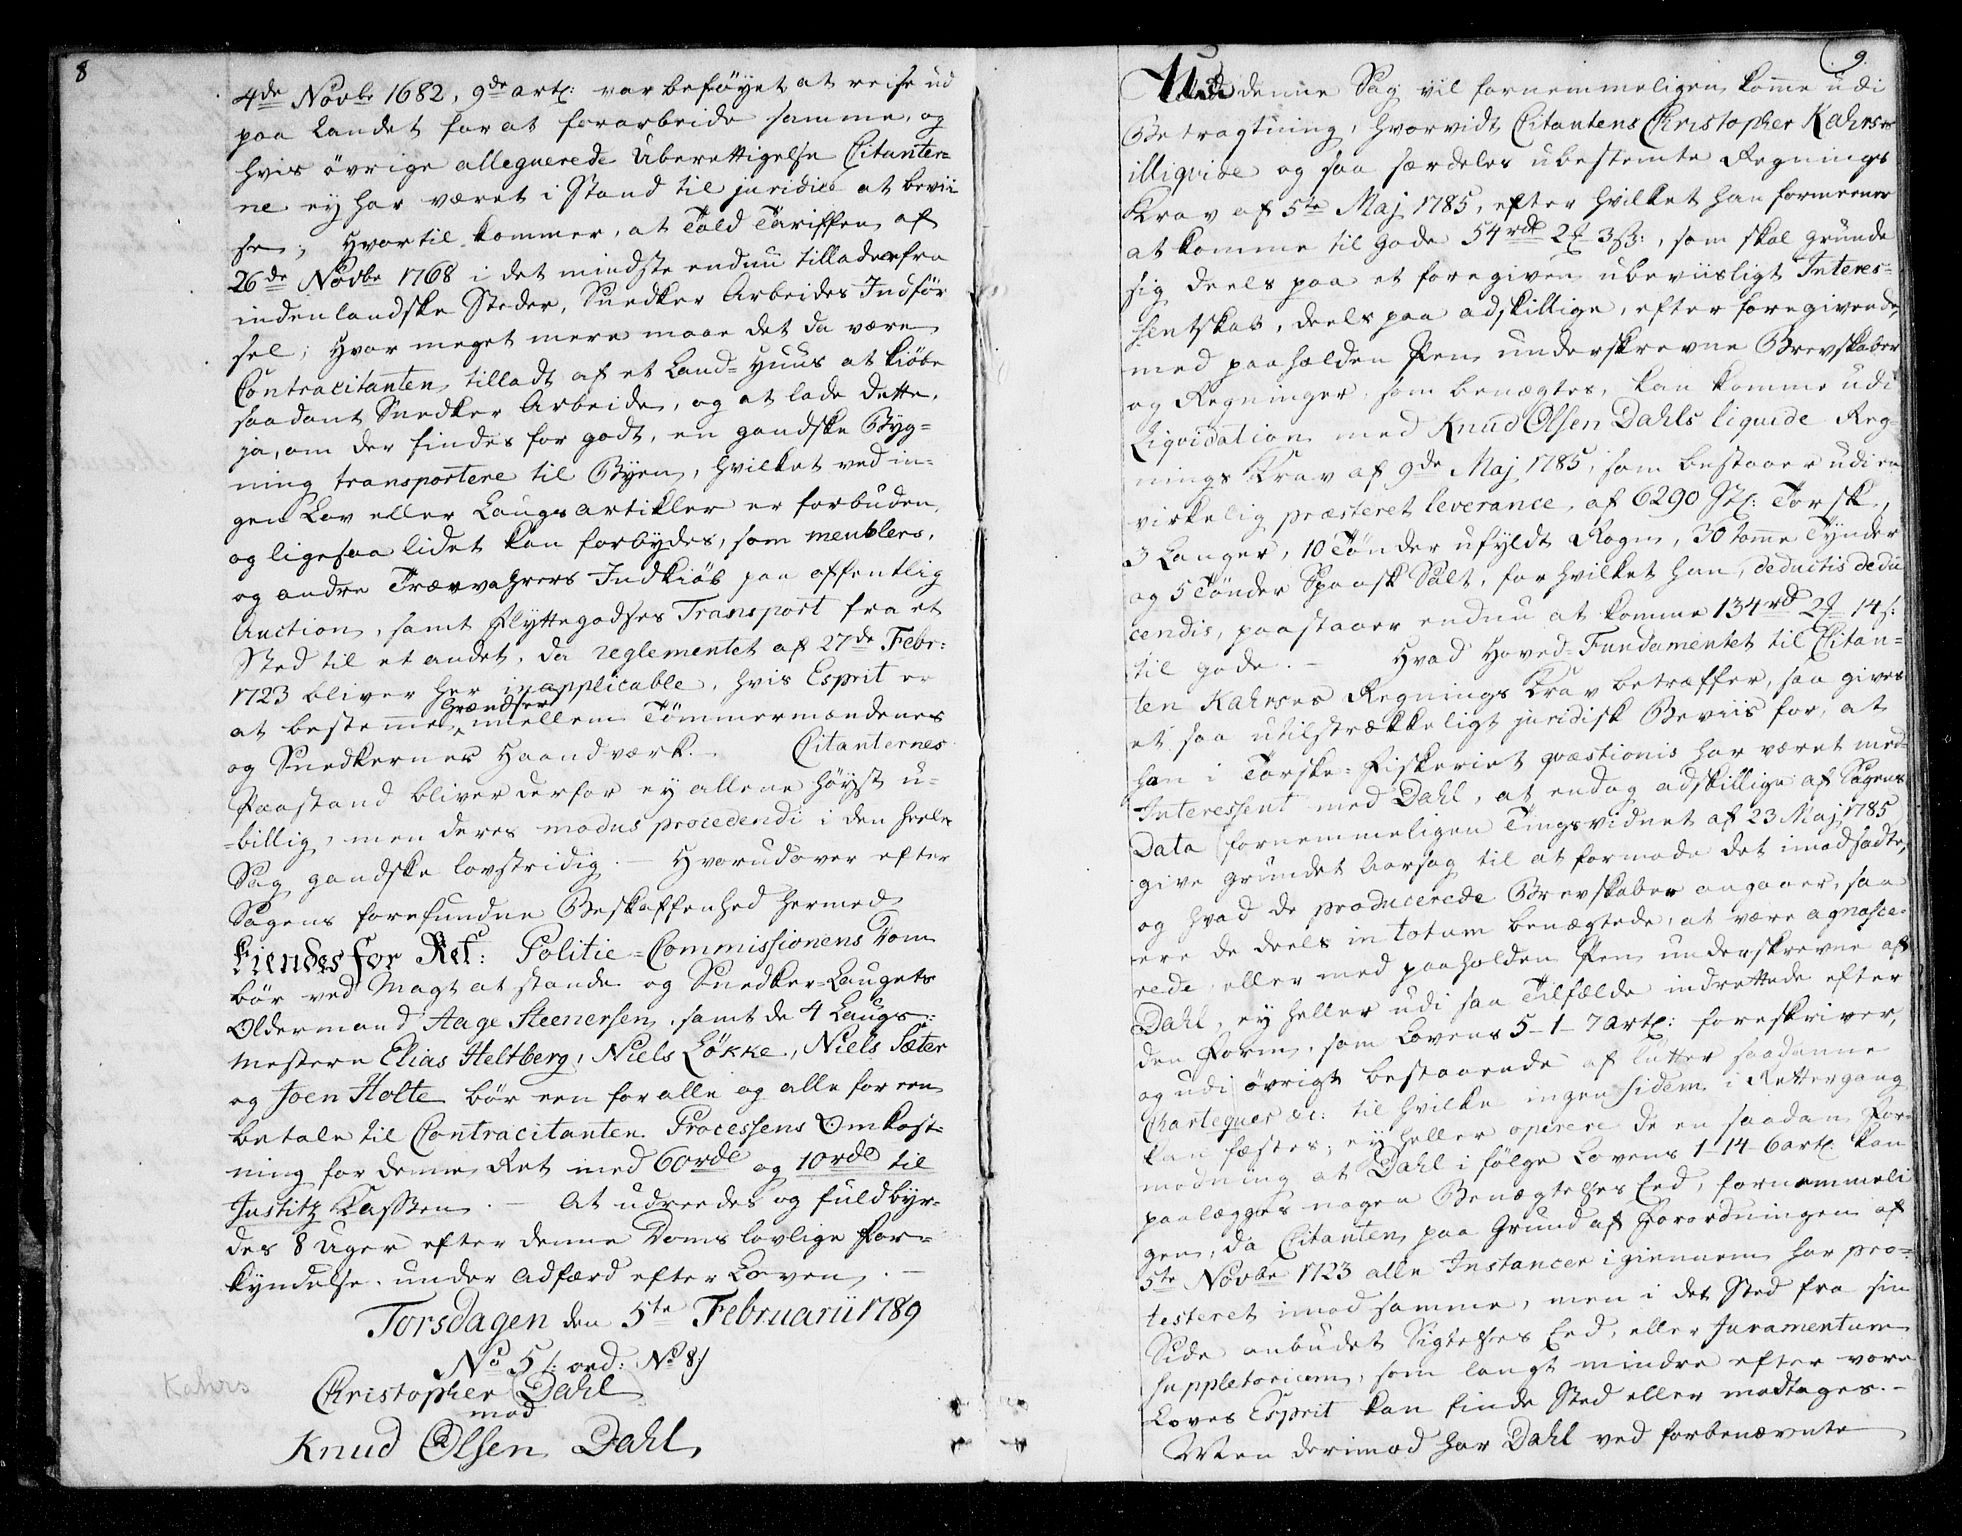 8
4de Novbr 1682, 9de art: var beföyet at reise ud
paa Landet for at forarbeide samme, og
hvis övrige alleguerede Uberettigelse Citanter-
ne ey har været i Stand til juridice at bevii
se; Hvortil kommer, at Told Tariffen af
26de Novbr 1768 i det mindste endnu tillader fra
indenlandske Steder, Snedker Arbeides Indför
sel; Hvor meget mere maae det da være
Contracitanten tilladt af et Land-Huus at kiöbe
saadant Snedker Arbeide, og at lade dette,
ja, om der findes for godt, en gandske Byg-
ning transportere til Byen, hvilket ved in-
gen Lov eller Laugs artikler er forbuden,
og ligesaa lidet kan forbydes, som meublers,
og andre Trævahrers Indkiöb paa offentlig
Auction, samt Flyttegodses Transport fra et
Sted til et andet, da reglementet af 27de Febr:
1723 bliver her inapplicable, hvis Esprit er
at bestemme Grændser mellem Tömmermændenes
og Snedkernes Haandværk. Citanternes
Paastand bliver derfor ey allene höyst u-
billig, men deres modus procedendi i den heele
Sag gandske lovstridig. — Hvorudover efter
Sagens forefundne Beskaffenhed hermed
Kiendes for Ret: Politie-Commissionens Dom
bör ved Magt at stande og Snedker-Laugets
Oldermand Aage Steenersen, samt de 4 Laugs-
mestere Elias Heltberg, Niels Lökke, Niels Sæter
og Joen Holte bör een for alle og alle for een
betale til Contracitanten Processens Omkost-
ning for denne Ret med 60rdr og 10rdr til
Justitz Kassen. — At udreedes og fuldbyr-
des 8 Uger efter denne Doms lovlige For-
kyndelse, under Adfærd efter Loven. —
Torsdagen den 5te Februarii 1789
No 5 /: ord: No 8/
Kahrs
Christopher (Dahl)
mod
Knud Olsen Dahl,
9.
Udi denne Sag vil fornemmeligen komme udi
Betragtning, hvorvidt Citantens Christopher Kahrses
illiqvide og saa særdeles ubestemte Regnings
Krav af 5te Maj 1785, efter hvilket han formeener
at komme til gode 54rdr 2 3 ß:, som skal grunde
sig deels paa et foregiven ubeviisligt Interes-
sentskab, deels paa adskillige, efter foregivende,
med paaholden Pen underskrevne Brevskaber
og Regninger, som benægtes, kan komme udi
Liqvidation med Knud Olsen Dahls liquide Reg-
nings Krav af 9de Maj 1785, som bestaaer udi en
virkelig præsteret leverance, af 6290 St: Torsk,
3 Langer, 10 Tönder ufyldt Rogn, 30 tomme Tynder
og 5 Tönder Spansk Salt, for hvilket han, deductis dedu
cendis, paastaaer endnu at komme 134rd 2 14 s:
til gode. — Hvad Hoved-Fundamentet til Citan-
ten Kahrses Regnings Krav betræffer, saa gives
et saa utilstrækkeligt juridisk Beviis for, at
han i Torske-Fiskeriet qvæstionis har været med-
Interessent med Dahl, at endog adskillige af Sagens
Data (fornemmeligen Tingsvidnet af 23 Maj 1785)
give grundet Aarsag til at formode det imodsadte,
og hvad de producerede Brevskaber angaaer, saa
ere de deels in totum benægtede, at være agnosce-
rede, eller med paaholden Pen underskrevne af
Dahl, ey heller udi saa Tilfælde indrettede efter
den Form, som Lovens 5-1-7 art: foreskriver,
og udi övrigt bestaaende af lutter saadanne
Chartequer &c: til hvilke ingen fidem i Rettergang
kan fæstes; ey heller operere de en saadan For-
modning at Dahl i fölge Lovens 1-14-6 art: kan
paalægges nogen Benægtelses Eed, fornemmeli
gen, da Citanten paa Grund af Forordningen af
5te Novbr 1723 alle Instancer igiennem har pro-
testeret imod samme, men i det Sted fra sin
Side anbudet Sigtelses Eed, eller Juramentum
suppletorium, som langt mindre efter vore
Loves Esprit kan finde Sted eller modtages. —
Men derimod har Dahl ved forbenævnte